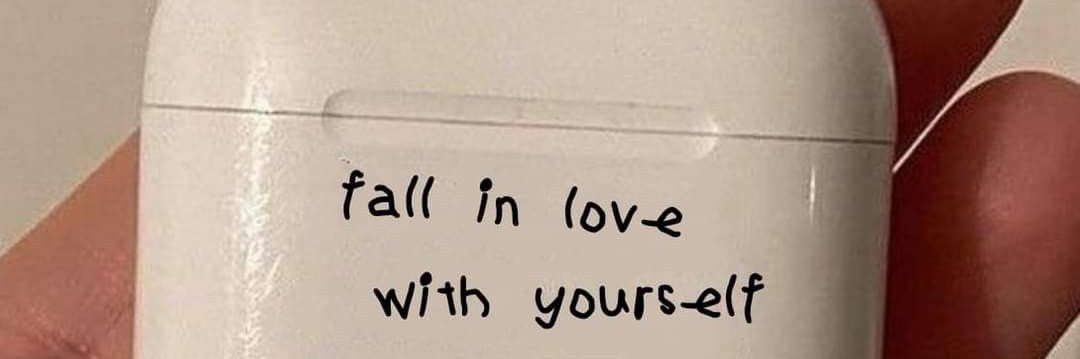 fall in love
with yourself